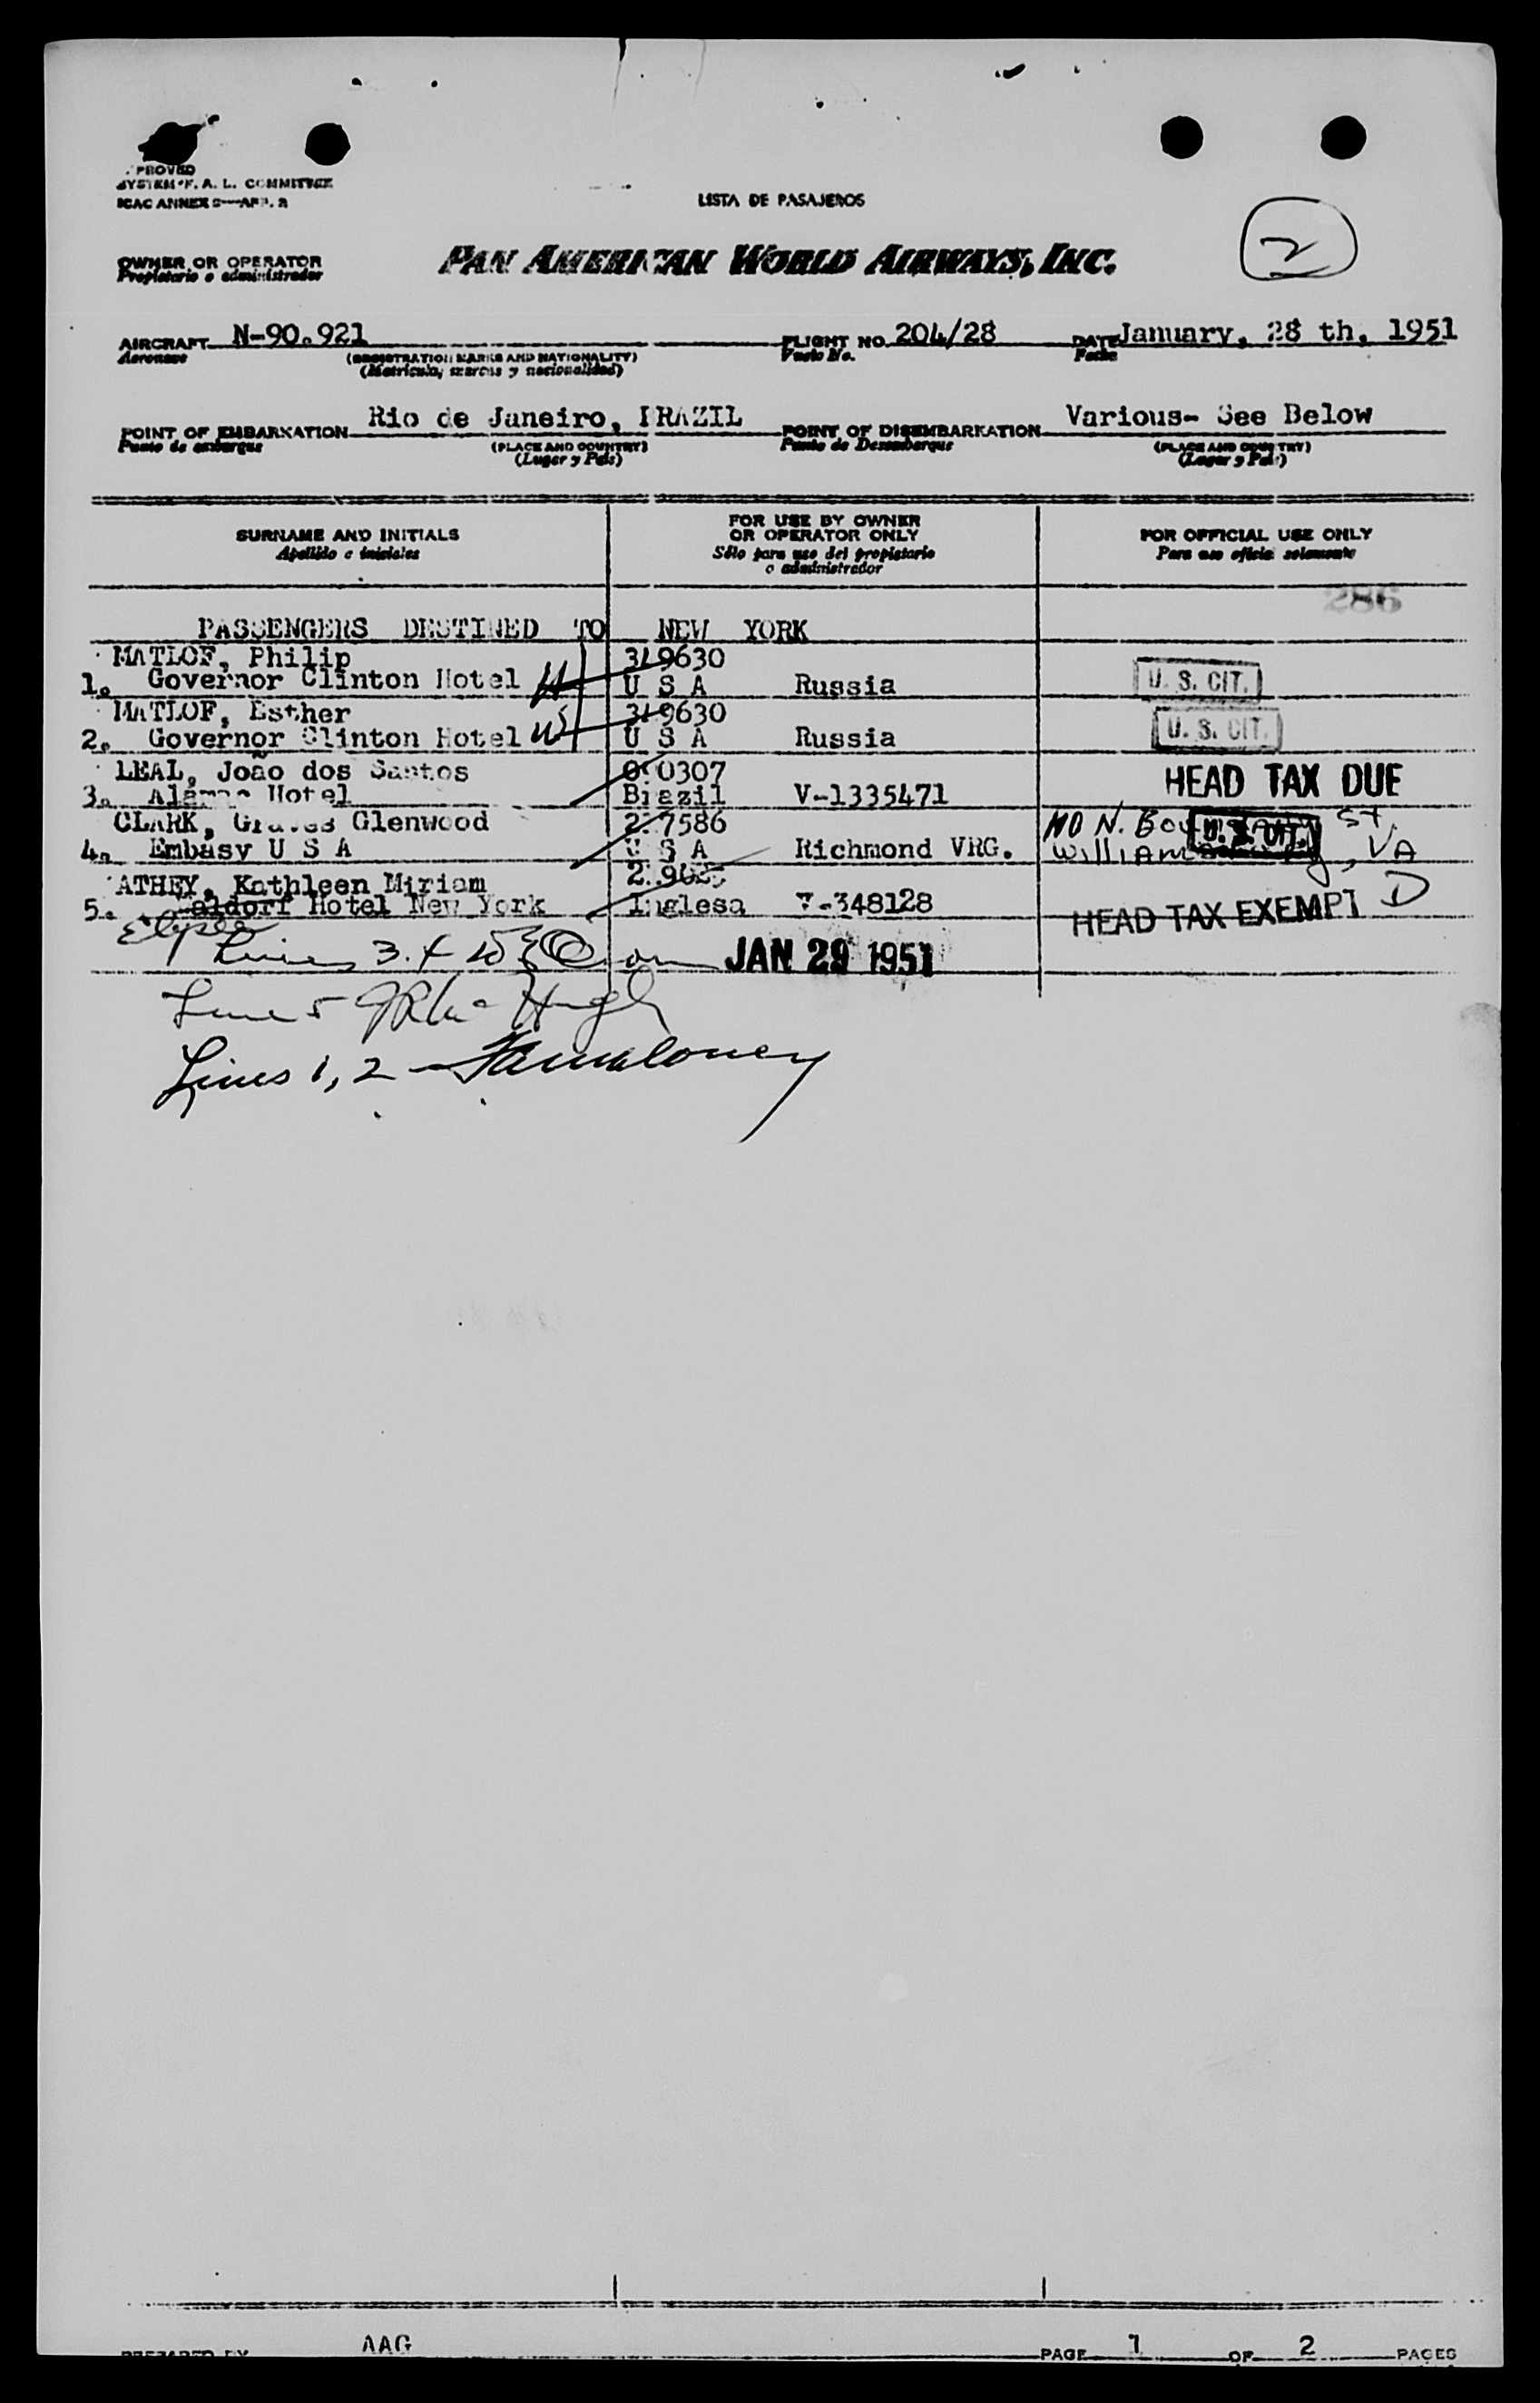 PROVED
SYSTEM F. A. L. COMMITTEE
ICAC ANNEX 9—APP. 2
LISTA DE PASAJEROS
2
OWNER OR OPERATOR
Propietario o administrador
PAN AMERICAN WORLD AIRWAYS, INC.
AIRCRAFT N-90.921 FLIGHT NO. 204/28 DATE January, 28 th, 1951
Aeronave (REGISTRATION MARKS AND NATIONALITY) Vuelo No. Fecha
(Matricula, marcas y nacionalidad)
POINT OF EMBARKATION Rio de Janeiro, BRAZIL POINT OF DISEMBARKATION Various- See Below
Punto de embarque (PLACE AND COUNTRY) Punto de Desembarque (PLACE AND COUNTRY)
(Lugar y Pais) (Lugar y Pais)
SURNAME AND INITIALS
Apellido e iniciales
FOR USE BY OWNER
OR OPERATOR ONLY
Sólo para uso del propietario
o administrador
FOR OFFICIAL USE ONLY
Para uso oficial solamente
286
PASSENGERS DESTINED TO NEW YORK
MATLOF, Philip 319630
1. Governor Clinton Hotel U S A Russia U. S. CIT.
MATLOF, Esther 319630
2. Governor Clinton Hotel U S A Russia U. S. CIT.
LEAL, João dos Santos 0307 HEAD TAX DUE
3. Hotel Brazil V-1335471
CLARK, Graves Glenwood 7586 N. St.
4. Embasy U S A U S A Richmond VRG. U. S. CIT. Williamsburg, VA
ATHEY, Kathleen Miriam
5. aldorf Hotel New York Inglesa V-348128 HEAD TAX EXEMPT D
Lines 3. 4 JAN 29 1951
Line 5
Lines 1, 2 -
PREPARED BY AAG PAGE 1 OF 2 PAGES